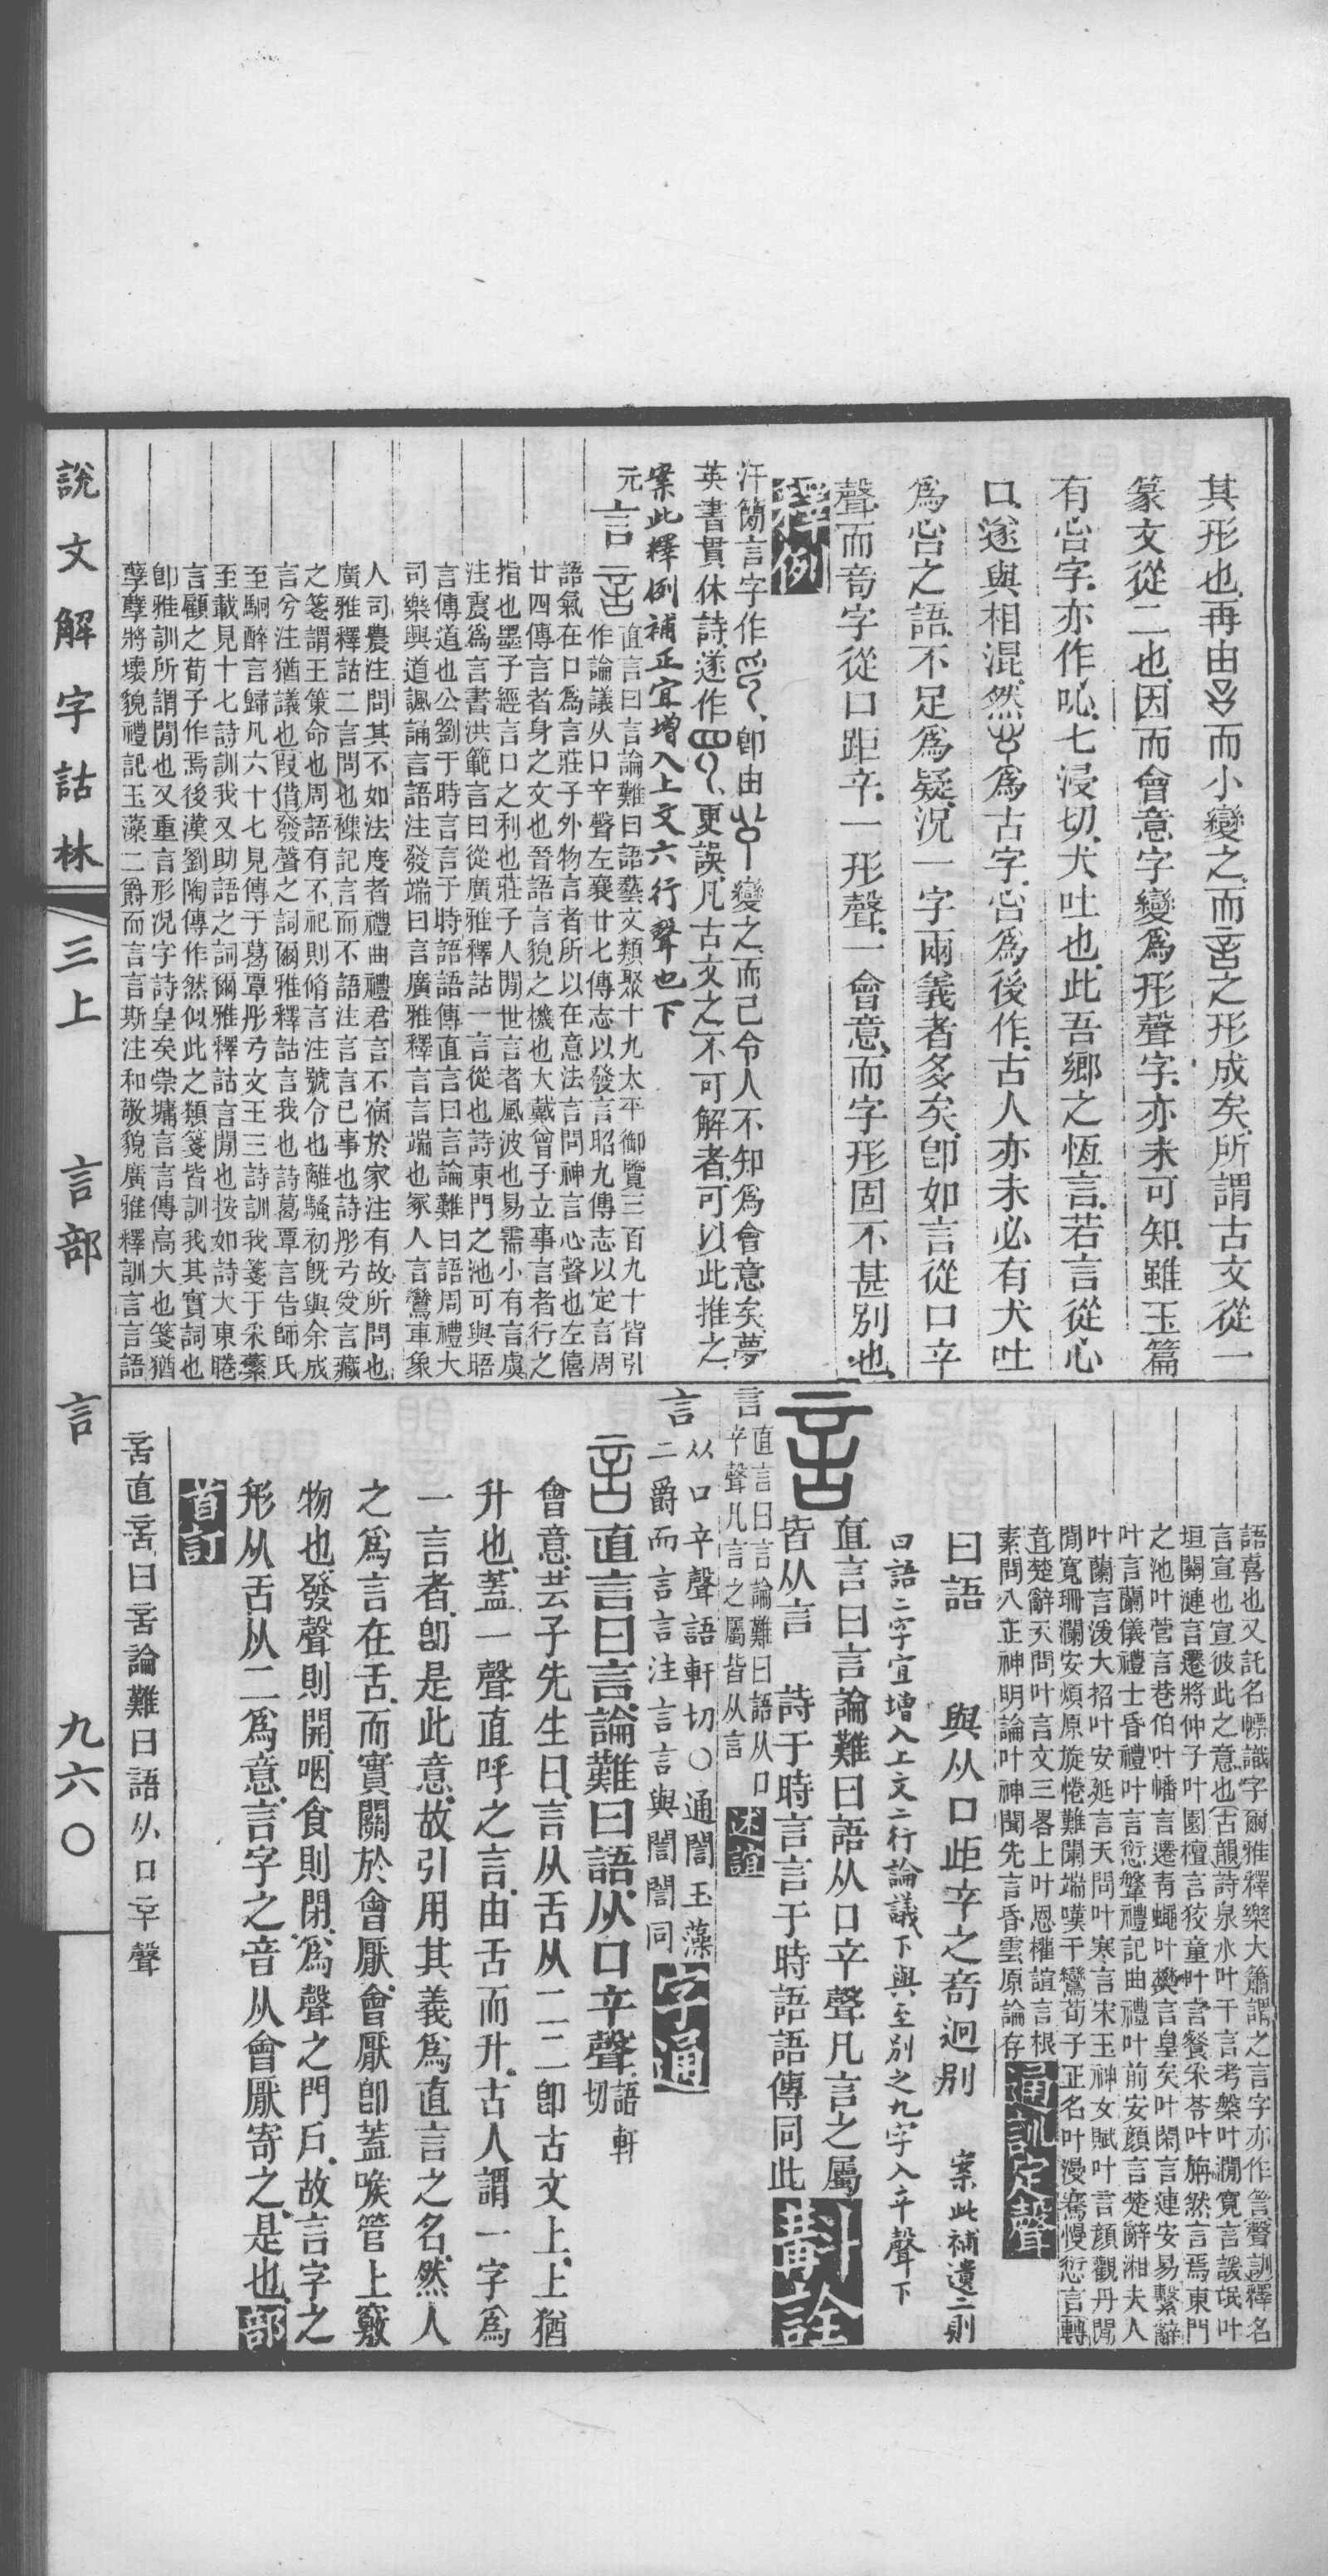 其形也再由而小變之而之形成矣所謂古文從一
篆文從二也因而會意字變爲形聲字亦未可知雖玉篇
有㕻字亦作吣七浸切犬吐也此吾鄉之恆言若言從心
口遂與相混然爲古字㕻爲後作古人亦未必有犬吐
爲㕻之語不足爲疑況一字兩義者多矣卽如言從口䇂
聲而咅字從口距䇂一形聲一會意而字形固不甚別也
釋例
汗簡言字作卽由變之而已令人不知爲會意矣夢
英書貫休詩遂作更誤凡古文之不可解者可以此推之
案此釋例補正宜增入上文六行聲也下
元言
直言曰言論難曰語藝文類聚十九太平御覽三百九十皆引
作論議从口䇂聲左襄廿七傳志以發言昭九傳志以定言周
語氣在口爲言莊子外物言者所以在意法言問神言心聲也左僖
廿四傳言者身之文也晉語言貌之機也大戴曾子立事言者行之
指也墨子經言口之利也莊子人閒世言者風波也易需小有言虞
注震爲言書洪範言曰從廣雅釋詁一言從也詩東門之池可與晤
言傳道也公劉于時言言于時語語傳直言曰言論難曰語周禮大
司樂興道諷誦言語注發端曰言廣雅釋言言端也冢人言鸞車象
人司農注問其不如法度者禮曲禮君言不宿於家注有故所問也
廣雅釋詁二言問也襍記言而不語注言言已事也詩彤弓受言藏
之箋謂王策命也周語有不祀則脩言注號令也離騷初旣與余成
言兮注猶議也叚借發聲之詞爾雅釋詁言我也詩葛覃言告師氏
至駉醉言歸凡六十七見傳于葛覃彤弓文王三詩訓我箋于采蘩
至載見十七詩訓我又助語之詞爾雅釋詁言閒也按如詩大東睠
言顧之荀子作焉後漢劉陶傳作然似此之類箋皆訓我其實詞也
卽雅訓所謂閒也又重言形況字詩皇矣崇墉言言傳高大也箋猶
孼孼將壞貌禮記玉藻二爵而言言斯注和敬貌廣雅釋訓言言語
語喜也又託名幖識字爾雅釋樂大簫謂之言字亦作䇾聲訓釋名
言宣也宣彼此之意也古韻詩泉水叶干言考槃叶澗寬言諼氓叶
垣關漣言遷將仲子叶園檀言狡童叶言餐采苓叶旃然言焉東門
之池叶菅言巷伯叶幡言遷靑蠅叶樊言皇矣叶閑言連安易繫辭
叶言蘭儀禮士昏禮叶言愆鞶禮記曲禮叶前安顔言楚辭湘夫人
叶蘭言湲大招叶安延言天問叶寒言宋玉神女賦叶言顔觀丹閒
閒寬珊瀾安煩原旋惓難闌端嘆干鸞荀子正名叶漫騫慢愆言轉
音楚辭天問叶言文三畧上叶恩權誼言根
素問八正神明論叶神聞先言昏雲原論存通訓定聲
曰語　與从口歫䇂之咅迥別　案此補遺二則
曰語二字宜增入上文二行論議下與至別之九字入䇂聲下
直言曰言論難曰語从口䇂聲凡言之屬
皆从言　詩于時言言于時語語傳同此斠詮
言直言曰言論難曰語从口
䇂聲凡言之屬皆从言述誼
言从口䇂聲語軒切〇通誾玉藻
二爵而言言注言言與誾誾同字通
直言曰言論難曰語从口䇂聲語軒切
會意芸子先生曰言从舌从二二卽古文上上猶
升也蓋一聲直呼之言由舌而升古人謂一字爲
一言者卽是此意故引用其義爲直言之名然人
之爲言在舌而實關於會厭會厭卽蓋喉管上竅
物也發聲則開咽食則閉爲聲之門戶故言字之
形从舌从二爲意言字之音从會厭寄之是也部
首訂
直曰論難曰語从口䇂聲
說文解字詁林　三上　言部　言　九六〇